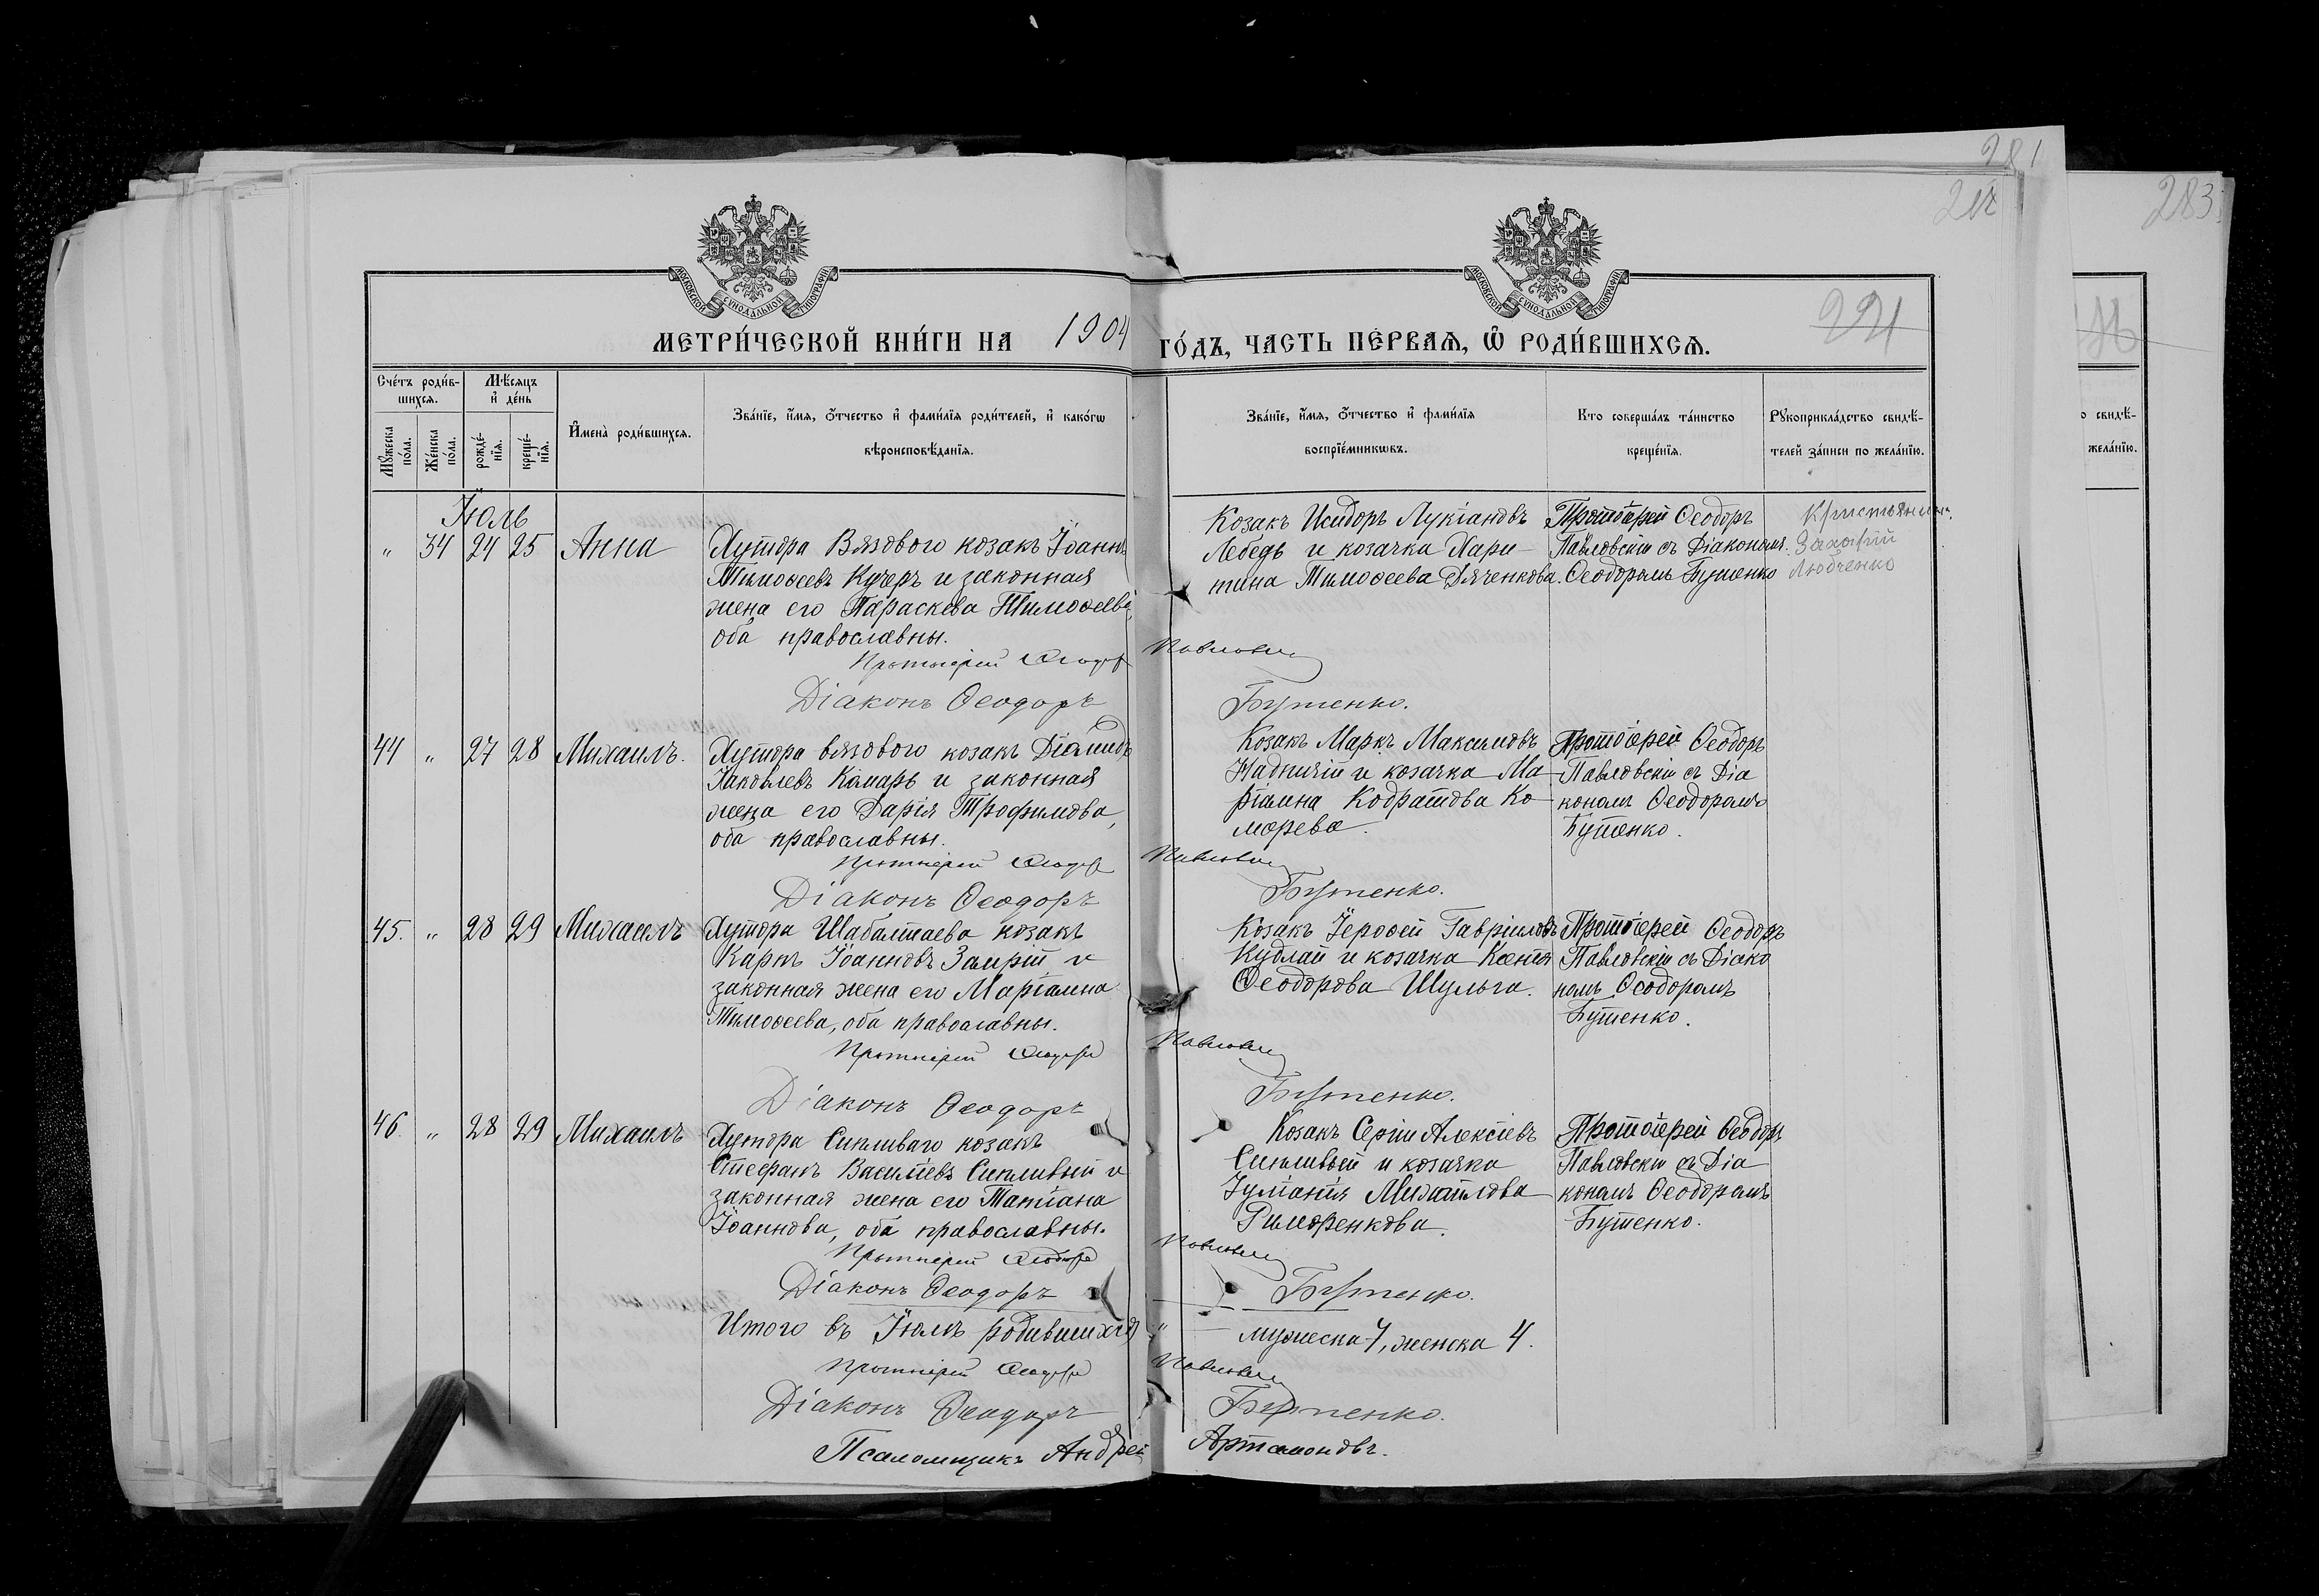 281
218
283
МОСКОВСКОЙ СѴНОДАЛЬНОЙ ТИПОГРАФІИ
МОСКОВСКОЙ СѴНОДАЛЬНОЙ ТИПОГРАФІИ
221
МЕТРИ́ЧЕСКОЙ КНИ́ГИ НА 1904 ГО́ДЪ, ЧАСТЬ ПЕ́РВАѦ, Ѡ҆ РОДИ́ВШИХСѦ.
Сче́тъ роди́в-
шихсѧ.
Мꙋ́жеска
по́ла.
Же́нска
по́ла.
Мѣ́сѧцъ
и҆ де́нь
рожде́-
нїѧ.
креще́-
нїѧ.
И҆мена̀ роди́вшихсѧ.
Зва́нїе, и҆́мѧ, ѻ҆́тчество и҆ фами́лїѧ роди́телей, и҆ како́гѡ
вѣроисповѣ́данїѧ.
Зва́нїе, и҆́мѧ, ѻ҆́тчество и҆ фами́лїѧ
воспрїе́мникѡвъ.
Кто соверша́лъ та́инство
креще́нїѧ.
Рꙋкоприкла́дство свидѣ́-
телей за́писи по жела́нїю.
о свидѣ́-
жела́нїю.
Іюль
" 34 24 25 Анна
Хутора Вязового козакъ Іоаннъ
Тимоѳеевъ Кучеръ и законная
жена его Параскева Тимоѳеева,
оба православны.
Козакъ Исидоръ Лукіановъ
Лебедь и козачка Хари-
тина Тимоѳеева Дяченкова.
Протоіерей Ѳеодоръ
Павловскій съ Діакономъ
Ѳеодоромъ Бутенко
Крестьянинъ
Захарій
Любченко
Протоіерей Ѳеодоръ Павловскій
Діаконъ Ѳеодоръ Бутенко.
44 " 27 28 Михаилъ.
Хутора вязового козакъ Діомидъ
Іаковлевъ Комаръ и законная
жена его Дарія Трофимова,
оба православны.
Козакъ Маркъ Максимовъ
и козачка Ма-
ріамна Кодратова Ко-
морева.
Протоіерей Ѳеодоръ
Павловскій съ Діа
кономъ Ѳеодоромъ
Бутенко.
Протоіерей Ѳеодоръ Павловскій
Діаконъ Ѳеодоръ Бутенко.
45. " 28 29 Михаилъ
Хутора Шабалтаева козакъ
Карпъ Іоанновъ Заирій и
законная жена его Маріамна
Тимоѳеева, оба православны.
Козакъ Іероѳей Гавріиловъ
Кудлай и козачка Ксенія
Ѳеодорова Шульга.
Протоіерей Ѳеодоръ
Павловскій съ Діако
номъ Ѳеодоромъ
Бутенко.
Протоіерей Ѳеодоръ Павловскій
Діаконъ Ѳеодоръ Бутенко.
46. " 28 29 Михаилъ
Хутора Сипливаго козакъ
Стефанъ Василіевъ Сипливый и
законная жена его Татіана
Іоаннова, оба православны.
Козакъ Сергій Алексіевъ
Сипливый и козачка
Іуліанія Михаилова
Риморенкова.
Протоіерей Ѳеодоръ
Павловскій съ Діа
кономъ Ѳеодоромъ
Бутенко.
Протоіерей Ѳеодоръ Павловскій
Діаконъ Ѳеодоръ Бутенко.
Итого въ Іюлѣ родившихся " мужеска 7, женска 4.
Протоіерей Ѳеодоръ Павловскій
Діаконъ Ѳеодоръ Бутенко.
Псаломщикъ Андрей Артамоновъ.